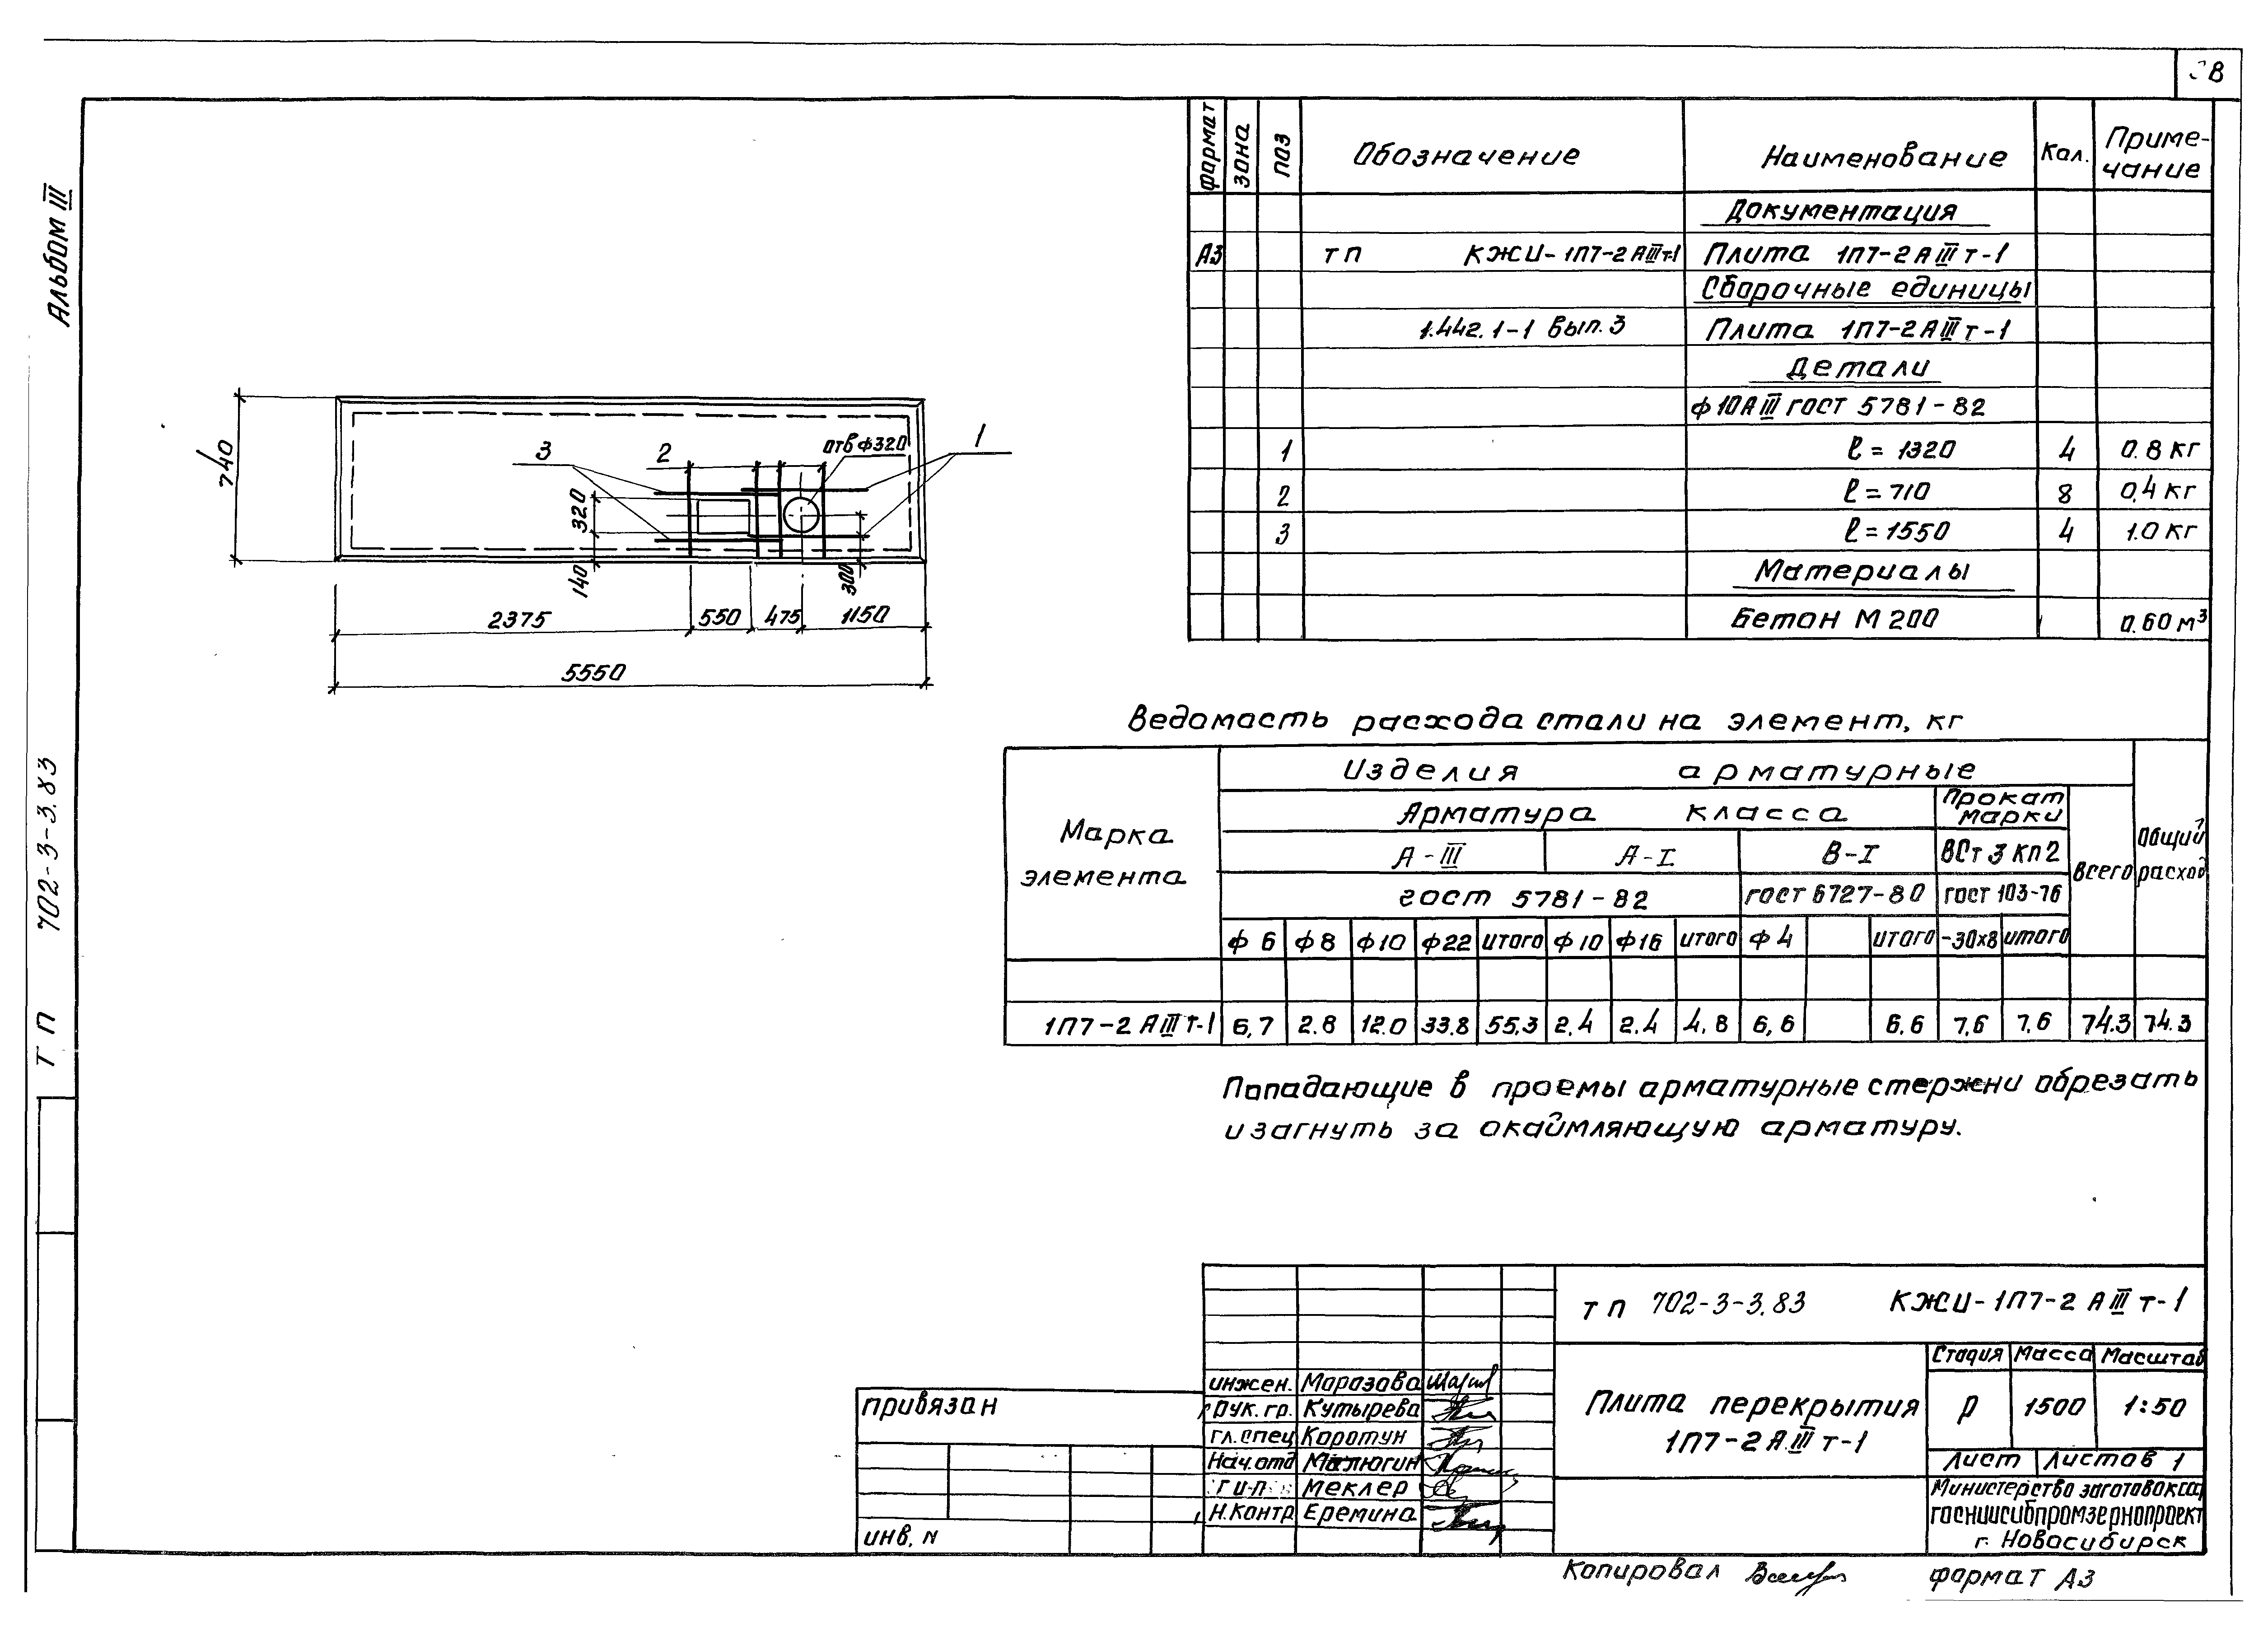 Альбом III
ТП 702-3-3.83
формат зона поз Обозначение Наименование Кол. Приме-
чание
Документация
А3 ТП КЖИ-1П7-2АIIIт-1 Плита 1П7-2АIIIт-1
Сборочные единицы
1.442.1-1 вып.3 Плита 1П7-2АIIIт-1
Детали
ф10АIII ГОСТ 5781-82
1 ℓ=1320 4 0.8 кг
2 ℓ=710 8 0,4 кг
3 ℓ=1550 4 1.0 кг
Материалы
Бетон М200 0.60 м³
3 2 отв ф320 1
740
320
140
300
2375 550 475 1150
5550
Ведомость расхода стали на элемент, кг
Марка
элемента
Изделия арматурные
Арматура класса
Прокат
марки
Всего
Общий
расход
А-III А-I В-I ВСт3кп2
ГОСТ 5781-82 ГОСТ 6727-80 ГОСТ 103-76
ф6 ф8 ф10 ф22 итого ф10 ф16 итого ф4 итого -30х8 итого
1П7-2АIIIТ-1 6,7 2.8 12.0 33.8 55.3 2.4 2.4 4,8 6,6 6.6 7,6 7,6 74.3 74.3
Попадающие в проемы арматурные стержни обрезать
и загнуть за окаймляющую арматуру.
ТП 702-3-3.83 КЖИ-1П7-2АIIIт-1
Плита перекрытия
1П7-2АIIIт-1
Стадия Масса Масштаб
Р 1500 1:50
Лист Листов 1
Министерство заготовок ссср
ГОСНИИСИБПРОМЗЕРНОПРОЕКТ
г. Новосибирск
инжен. Моразова
Рук.гр. Кутырева
гл.спец Коротун
Нач.отд Малюгин
ГИП Меклер
Н.Контр Еремина
привязан
инв. N
Копировал
формат А3